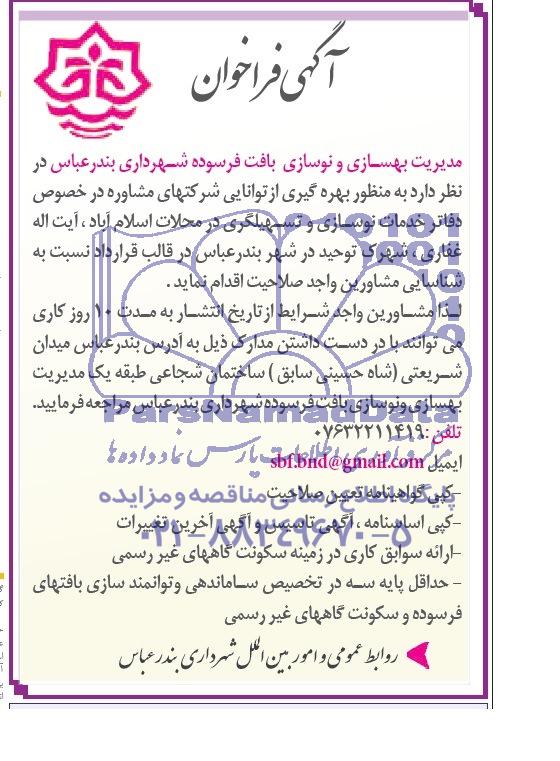 آگهی فراخوان
مدیریت بهسـازی و نوسازی بافت فرسوده شـهرداری بندرعباس در
نظر دارد به منظور بهره گیری از توانایی شرکتهای مشاوره در خصوص
دفاتر خدمات نوسـازی و تسـهیلگری در محلات اسلام آباد ، آیت اله
غفاری ، شهرک توحید در شهر بندرعباس در قالب قرارداد نسبت به
شناسایی مشاورین واجد صلاحیت اقدام نماید .
لـذا مشـاورین واجد شـرایط از تاریخ انتشـار به مـدت ۱۰ روز کاری
می توانند با در دسـت داشتن مدارک ذیل به آدرس بندرعباس میدان
شـریعتی (شاه حسینی سابق ) ساختمان شجاعی طبقه یک مدیریت
بهسازی ونوسازی بافت فرسوده شهرداری بندرعباس مراجعه فرمایید.
تلفن :۰۷۶۳۲۲۱۱۴۱۹
ایمیل sbf.bnd@gmail.com
-کپی گواهینامه تعیین صلاحیت
-کپی اساسنامه ، آگهی تاسیس و آگهی آخرین تغییرات
-ارائه سوابق کاری در زمینه سکونت گاههای غیر رسمی
- حداقل پایه سـه در تخصیص سـاماندهی وتوانمند سازی بافتهای
فرسوده و سکونت گاههای غیر رسمی
روابط عمومی و امور بین الملل شهرداری بندرعباس
ParsNamadData
مرکز فرآوری اطلاعات پارس نماد داده ها
پایگاه اطلاع رسانی مناقصه و مزایده
۰۲۱-۸۸۳۴۹۶۷۰-۵